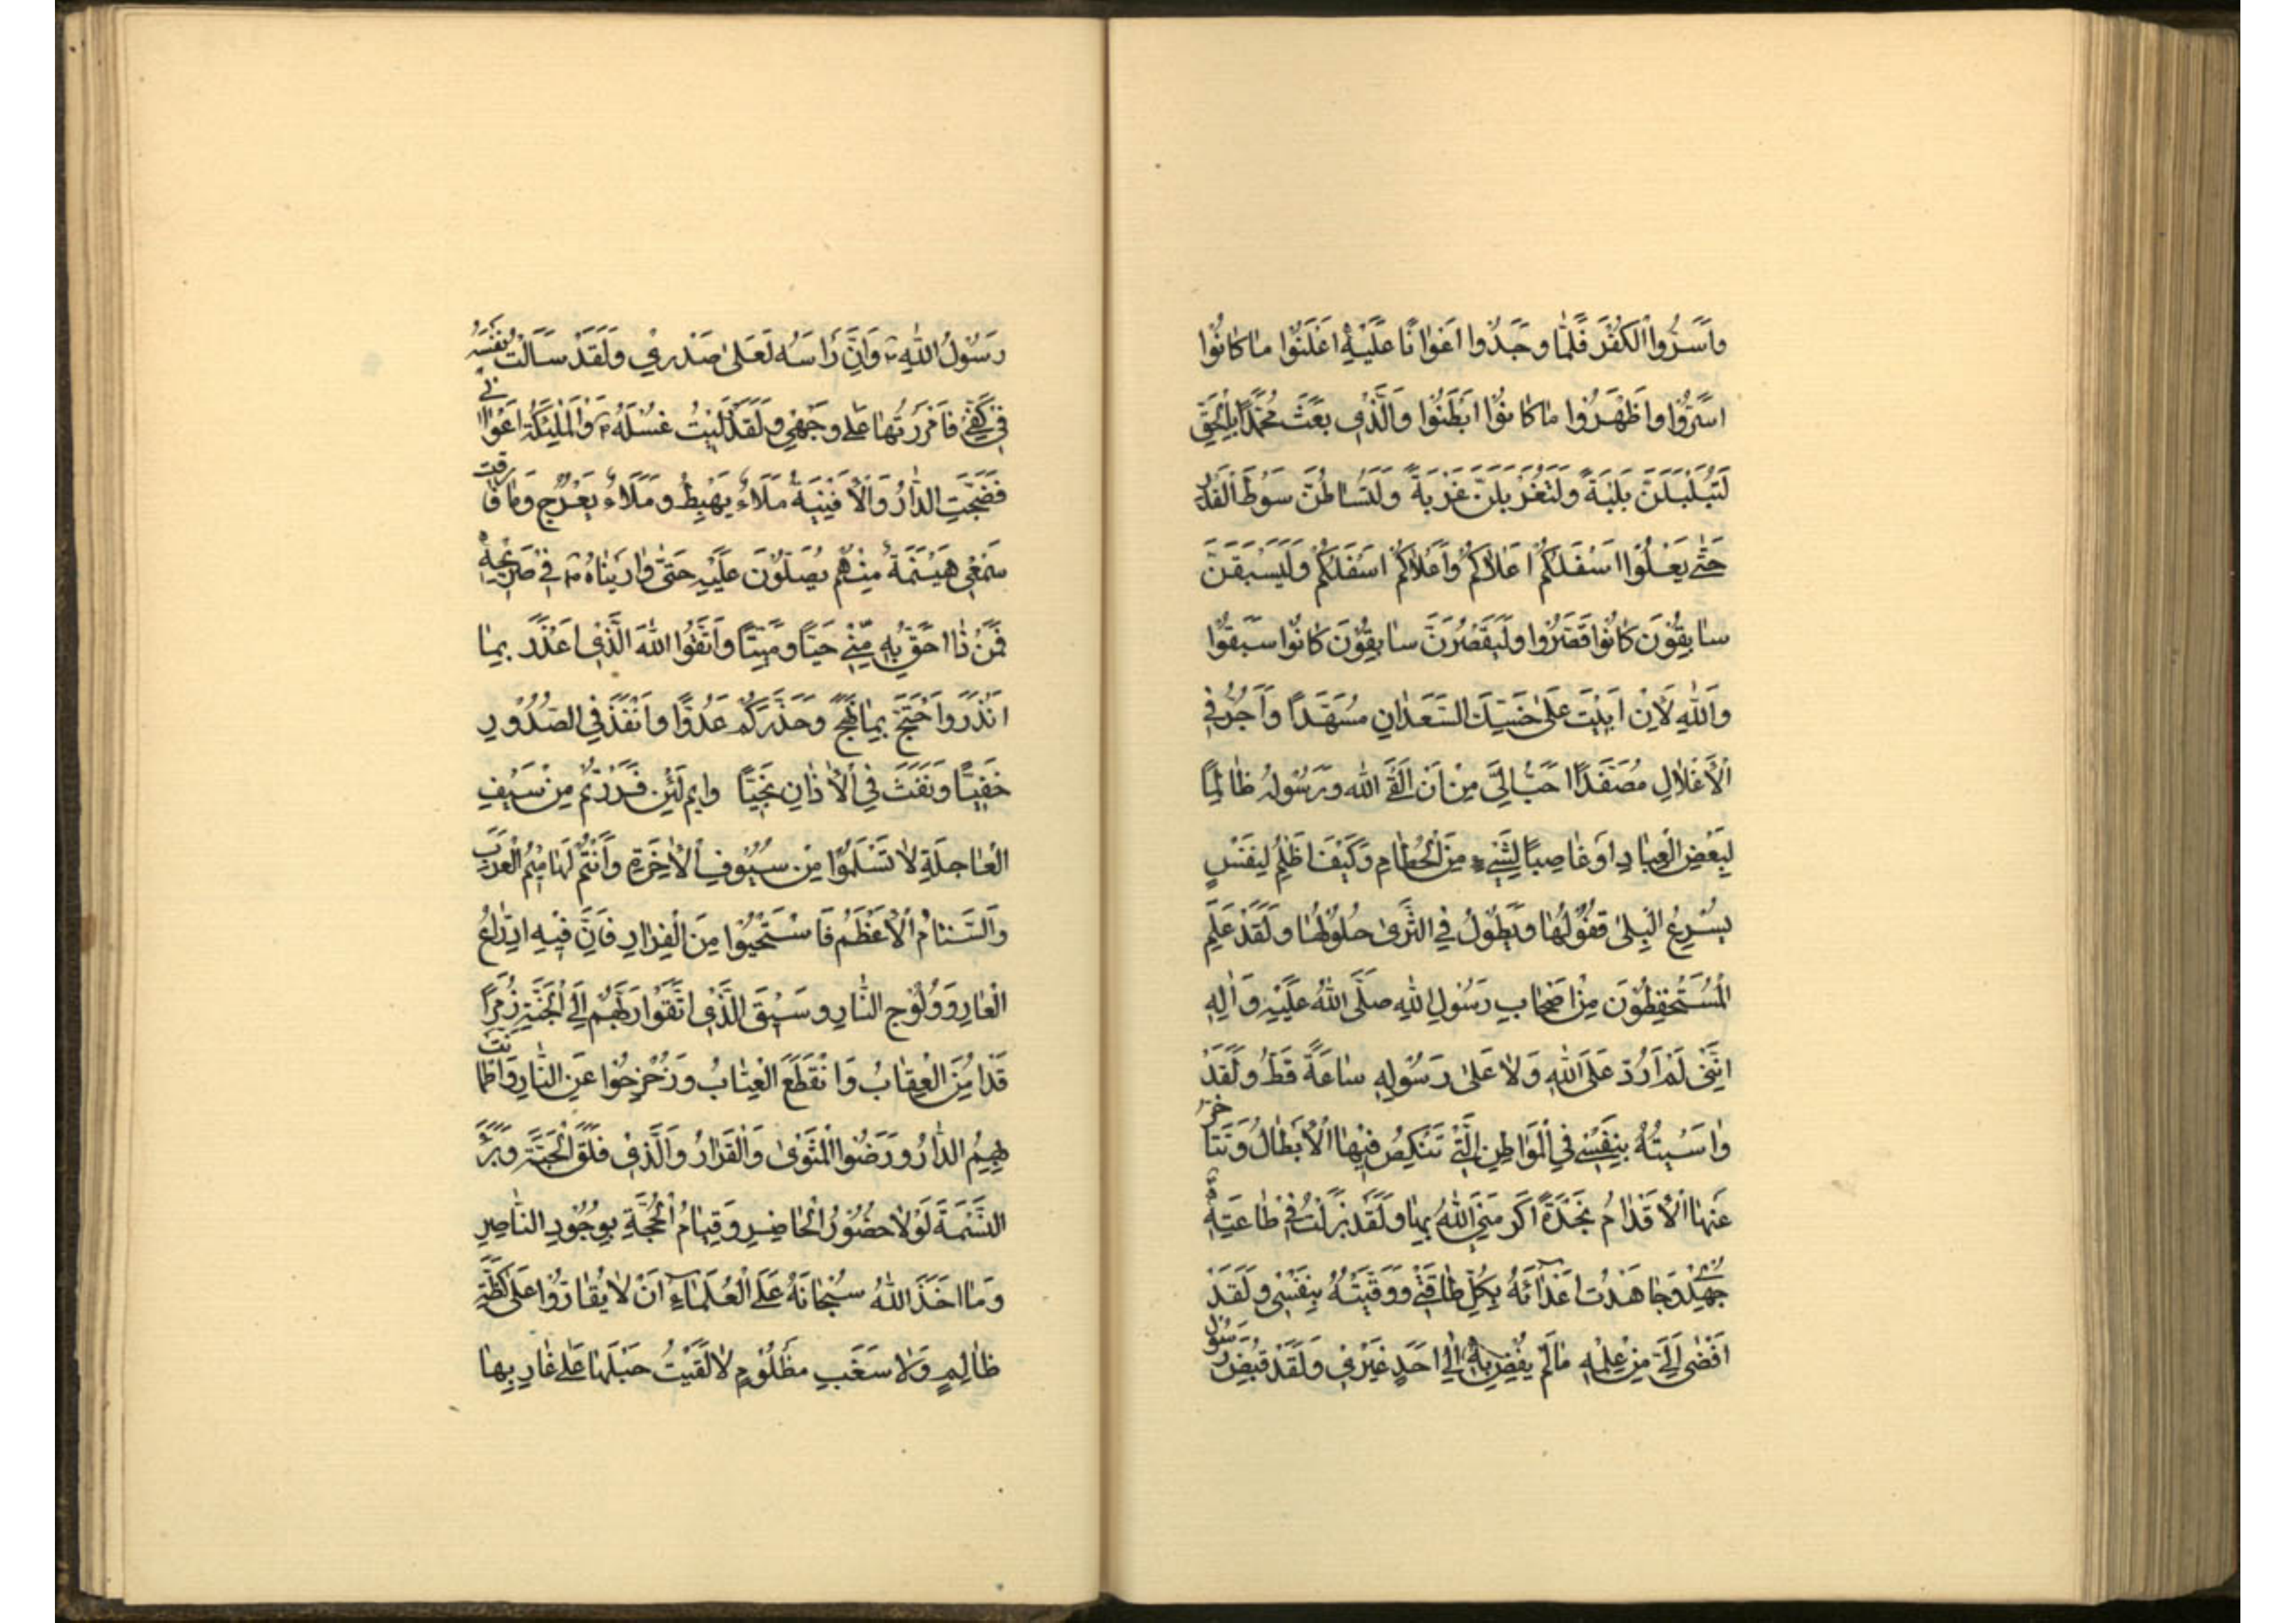 وَاَسَرُّوا الْكُفْرَ فَلَمَّا وَجَدُوا اَعْوَانًا عَلَيْهِ اَعْلَنُوا مَا كَانُوا
اَسَرُّوا وَاَظْهَرُوا مَا كَانُوا اَبْطَنُوا وَالَّذِي بَعَثَ مُحَمَّدًا بِالْحَقِّ
لَتُبَلْبَلَنَّ بَلْبَةً وَلَتُغَرْبَلُنَّ غَرْبَةً وَلَتُسَاطُنَّ سَوْطَ الْقِدْرِ
حَتّٰى يَعْلُوَا اَسْفَلَكُمْ اَعْلَاكُمْ وَاَعْلَاكُمْ اَسْفَلَكُمْ وَلَيَسْبِقَنَّ
سَابِقُوْنَ كَانُوْا قَصَرُوا وَلَيَقْصُرَنَّ سَابِقُوْنَ كَانُوْا سَبَقُوْا
وَاللّٰهِ لَاِنْ اَبِيْتَ عَلٰى حَسَكِ السَّعْدَانِ مُسَهَّدًا وَاُجَرُّ فِي
الْاَغْلَالِ مُصَفَّدًا اَحَبُّ اِلَيَّ مِنْ اَنْ اَلْقَى اللّٰهَ وَرَسُوْلَهُ ظَالِمًا
لِبَعْضِ الْعِبَادِ اَوْ غَاصِبًا لِشَيْءٍ مِنَ الْحُطَامِ وَكَيْفَ اَظْلِمُ لِنَفْسٍ
يُسْرِعُ الْبِلٰى قُفُوْلُهَا وَيَطُوْلُ فِي الثَّرٰى حُلُوْلُهَا وَلَقَدْ عَلِمَ
الْمُسْتَحْفِظُوْنَ مِنْ اَصْحَابِ رَسُوْلِ اللّٰهِ صَلَّى اللّٰهُ عَلَيْهِ وَاٰلِهِ
اِنَّنِيْ لَمْ اَرُدَّ عَلَى اللّٰهِ وَلَا عَلٰى رَسُوْلِهِ سَاعَةً قَطُّ وَلَقَدْ
وَاسَيْتُهُ بِنَفْسِيْ فِي الْمَوَاطِنِ الَّتِيْ تَنْكِصُ فِيْهَا الْاَبْطَالُ وَتَتَاَخَّرُ
عَنْهَا الْاَقْدَامُ نَجْدَةً اَكْرَمَنِيَ اللّٰهُ بِهَا وَلَقَدْ نَزَلْتُ فِيْ طَاعَتِهِ
جُهْدِيْ وَجَاهَدْتُ اَعْدَائَهُ بِكُلِّ طَاقَتِيْ وَوَقَيْتُهُ بِنَفْسِيْ وَلَقَدْ
اَفْضٰى اِلَيَّ مِنْ عِلْمِهِ مَا لَمْ يُفْضِ بِهِ اِلٰى اَحَدٍ غَيْرِيْ وَلَقَدْ قُبِضَ رَسُوْلُ
رَسُوْلُ اللّٰهِ ص وَاِنَّ رَاْسَهُ لَعَلٰى صَدْرِيْ وَلَقَدْ سَالَتْ نَفْسُهُ
فِيْ كَفِّيْ فَاَمْرَرْتُهَا عَلٰى وَجْهِيْ وَلَقَدْ وَلِيْتُ غُسْلَهُ ص وَالْمَلٰئِكَةُ اَعْوَانِيْ
فَضَجَّتِ الدَّارُ وَالْاَفْنِيَةُ مَلَاءٌ يَهْبِطُ وَمَلَاءٌ يَعْرُجُ وَمَا فَارَقَتْ
سَمْعِيْ هَيْنَمَةٌ مِنْهُمْ يُصَلُّوْنَ عَلَيْهِ حَتّٰى وَارَيْنَاهُ ص فِيْ ضَرِيْحِهِ
فَمَنْ ذَا اَحَقُّ بِهِ مِنِّيْ حَيًّا وَمَيِّتًا وَاتَّقُوا اللّٰهَ الَّذِيْ اَعْذَرَ بِمَا
اَنْذَرَ وَاحْتَجَّ بِمَا نَهَجَ وَحَذَّرَكُمْ عَدُوًّا وَاَنْفَذَ فِي الصُّدُوْرِ
خَفِيًّا وَنَفَثَ فِي الْاٰذَانِ نَجِيًّا وَايْمُ لَئِنْ فَرَرْتُمْ مِنْ سَيْفِ
الْعَاجِلَةِ لَا تَسْلَمُوْا مِنْ سُيُوْفِ الْاٰخِرَةِ وَاَنْتُمْ لَهَامِيْمُ الْعَرَبِ
وَالسَّنَامُ الْاَعْظَمُ فَاسْتَحْيُوْا مِنَ الْفِرَارِ فَاِنَّ فِيْهِ ادِّرَاعَ
الْعَارِ وَوُلُوْجَ النَّارِ وَسِيْقَ الَّذِيْ اتَّقَوْا رَبَّهُمْ اِلَى الْجَنَّةِ زُمَرًا
قَدْ اُمِنَ الْعِقَابُ وَانْقَطَعَ الْعِتَابُ وَزُحْزِحُوْا عَنِ النَّارِ وَاطْمَاَنَّتْ
بِهِمُ الدَّارُ وَرَضُوا الْمَثْوٰى وَالْقَرَارَ وَالَّذِيْ فَلَقَ الْحَبَّةَ وَبَرَءَ
النَّسَمَةَ لَوْلَا حُضُوْرُ الْحَاضِرِ وَقِيَامُ الْحُجَّةِ بِوُجُوْدِ النَّاصِرِ
وَمَا اَخَذَ اللّٰهُ سُبْحَانَهُ عَلَى الْعُلَمَاءِ اَنْ لَا يُقَارُّوْا عَلٰى كِظَّةِ
ظَالِمٍ وَلَا سَغَبِ مَظْلُوْمٍ لَاَلْقَيْتُ حَبْلَهَا عَلٰى غَارِبِهَا